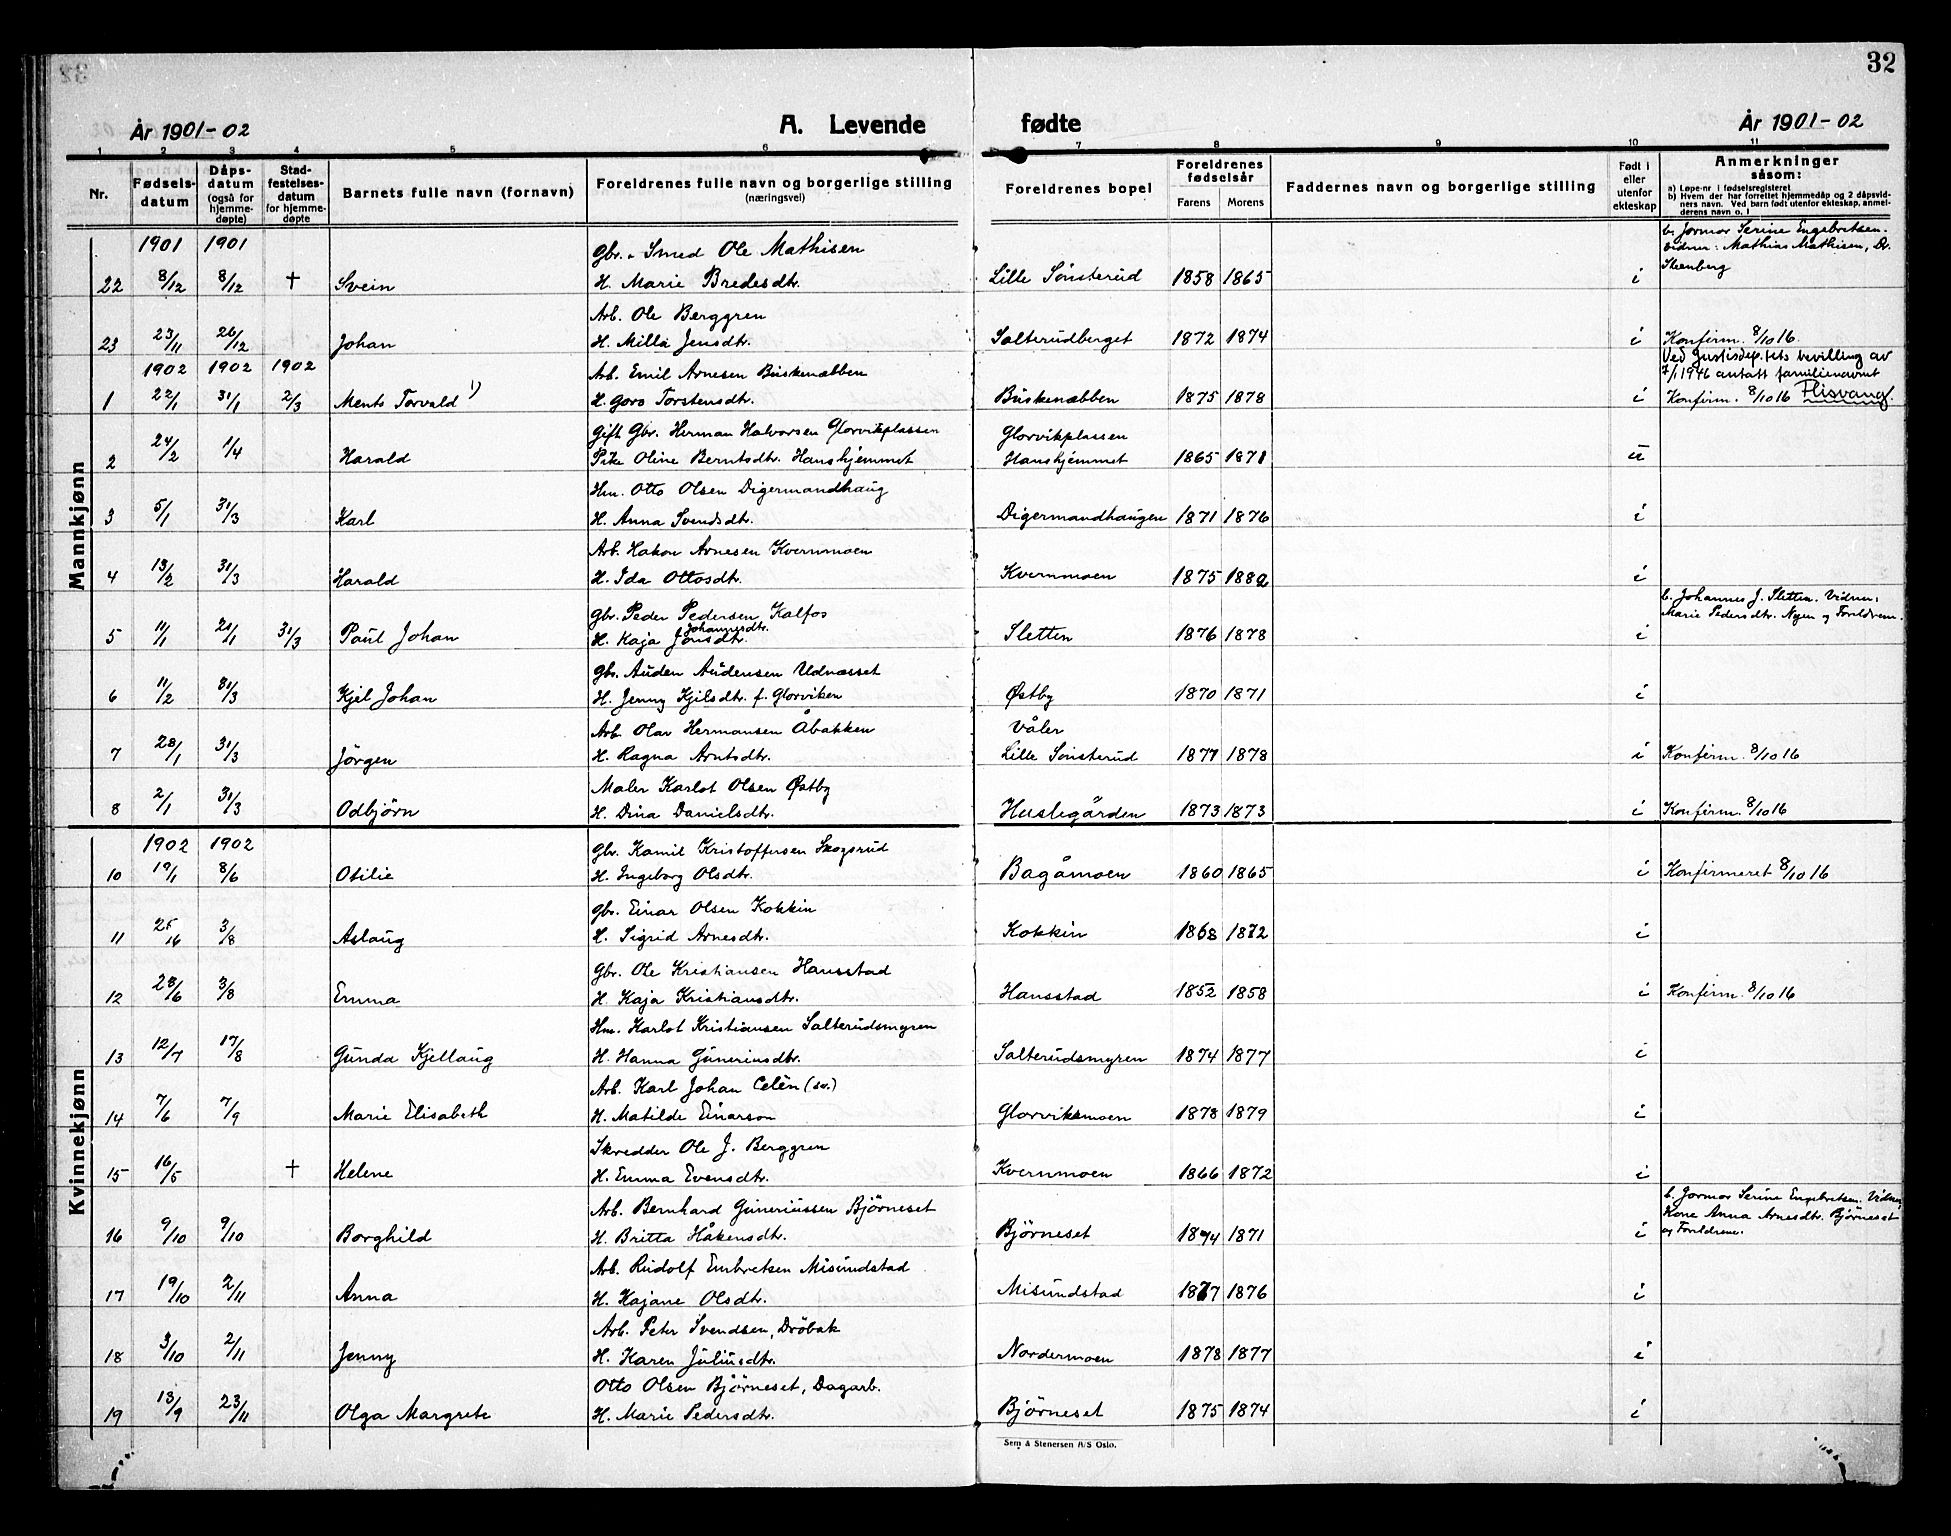 32
År 1901-02
A. Levende fødte
År 1901-02
1 2 3 4 5 6 7 8 9 10 11
Nr.
Fødsels-datum
Dåps-datum (også for hjemme-døpte)
Stad-festelses-datum for hjemme-døpte
Barnets fulle navn (fornavn)
Foreldrenes fulle navn og borgerlige stilling (næringsvei)
Foreldrenes bopel
Foreldrenes fødselsår
Farens Morens
Faddernes navn og borgerlige stilling
Født i eller utenfor ekteskap
Anmerkninger såsom:
a) Løpe-nr i fødselsregisteret
b) Hvem der har forrettet hjemmedåp og 2 dåpsvid-
ners navn. Ved barn født utenfor ekteskap, anmel-
derens navn o. l
Mannkjønn
1901 1901 Gbr. Smed Ole Mathisen b, Jormor Serine Engebretsen.
Vidner: Mathias Mathisen, Dr.
22 8/12 8/12 † Svein H. Marie Bredesdtr. Lille Sönsterud 1858 1865 i Steenberg
Arb. Ole Berggren
23 23/11 26/12 Johan H. Milla Jensdtr. Salterudberget 1872 1874 i Konfirm. 8/10 16.
1902 1902 1902 Arb. Emil Arnesen Buskenæbben Ved Justisdep.tets bevilling av
7/1 1946 antatt familienavnet
1 22/1 31/1 2/3 Ments Torvald 1) H. Goro Torstensdtr. Buskenæbben 1875 1878 i Konfirm. 8/10 16 Flisvang.
Gift Gbr. Herman Halvorsen Glorvikplassen Glorvikplassen
2 24/2 1/4 Harald Pike Oline Berntsdtr. Hanshjemmet Hanshjemmet 1865 1871 u
Hm. Otto Olsen Digermandhaug
3 5/1 31/3 Karl H. Anna Svendsdtr. Digermandhaugen 1871 1876 i
Arb. Hakon Arnesen Kvernmoen
4 13/2 31/3 Harald H. Ida Ottosdtr. Kvernmoen 1875 1882 i
Gbr. Peder Pedersen Kalfos b. Johannes J. Sletten. Vidner:
Johannesdtr. Marie Pedersdtr. Nyen og Foreldrene.
5 11/1 21/1 31/3 Paul Johan H. Kaja Jonsdtr. Sletten 1876 1878 i
Gbr. Auden Audensen Udnæsset
6 11/2 31/3 Kjel Johan H. Jenny Kjelsdtr. f. Glorviken Østby 1870 1871 i
Arb. Olav Hermansen Åbakken Våler
7 28/1 31/3 Jörgen H. Ragna Arntsdtr. Lille Sönsterud 1877 1878 i Konfirm. 8/10 16
Maler Karlot Olsen Østby
8 2/1 31/3 Odbjörn H. Dina Danielsdtr. Huslegården 1873 1873 i Konfirm. 8/10 16
Kvinnekjønn
1902 1902 Gbr. Kamil Kristoffersen Skogsrud
10 19/1 8/6 Otilie H. Ingeborg Olsdtr. Bagåmoen 1860 1865 i Konfirmeret 8/10 16
Gbr. Einar Olsen Kokkin
11 25/16 3/8 Aslaug H. Sigrid Arnesdtr. Kokkin 1868 1872 i
Gbr. Ole Kristiansen Hansstad
12 28/6 3/8 Emma H. Kaja Kristiansdtr. Hansstad 1852 1858 i Konfirm. 8/10 16
Hm. Karlot Kristiansen Salterudsmyren
13 12/7 17/8 Gunda Kjellaug H. Hanna Guneriusdtr. Salterudsmyren 1874 1877 i
Arb. Karl Johan Celèn (sv.)
14 7/6 7/9 Marie Elisabeth H. Matilde Einarson Glorvikmoen 1878 1879 i
Skredder Ole J. Berggren
15 16/5 † Helene H. Emma Evensdtr. Kvernmoen 1866 1872 i
Arb. Bernhard Guneriussen Björneset b. Jormor Serine Engebretsen. Vidner,
Kone Anna Arnesdtr. Björneset
16 9/10 9/10 Borghild H. Britta Håkensdtr. Björneset 1874 1871 i og Foreldrene.
Arb. Rudolf Embretsen Misundstad
17 19/10 2/11 Anna H. Kajane Olsdtr. Misundstad 1877 1876 i
Arb. Peter Svendsen, Dröbak
18 3/10 2/11 Jenny H. Karen Juliusdtr. Nordermoen 1878 1877 i
Otto Olsen Björneset, Dagarb.
19 13/9 23/11 Olga Margrete H. Marie Pedersdtr. Björneset 1875 1874 i
Sem & Stenersen A/S Oslo.